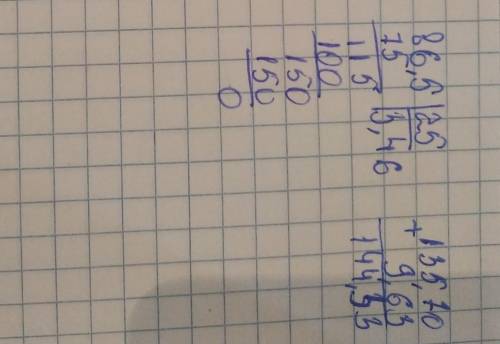 86,5 25
75 3,46
115
100
150
150
0
+ 135,70
9,63
144,33